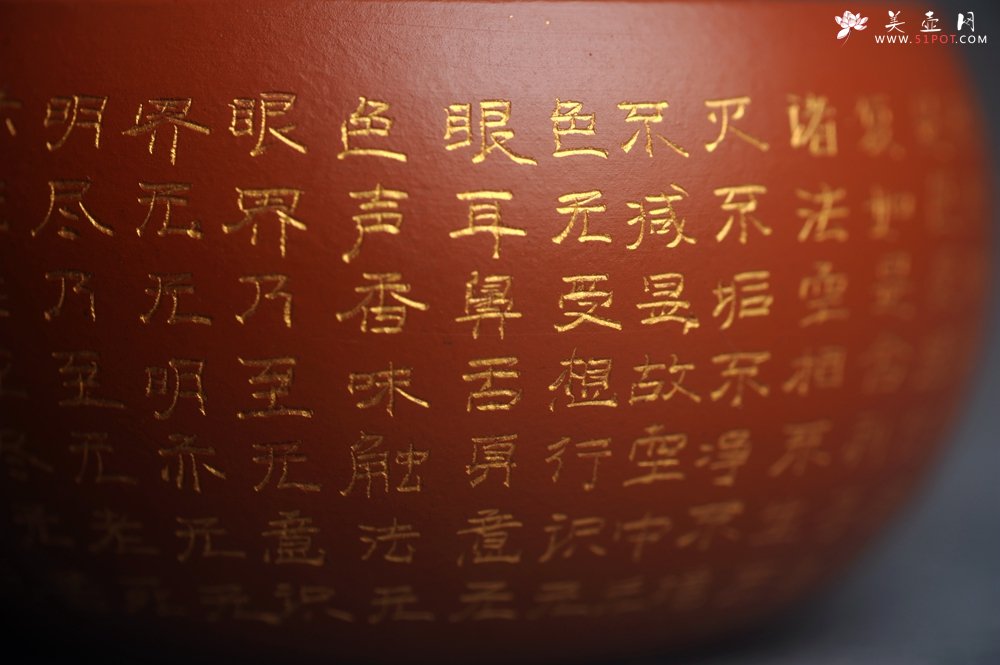 如是舍利
诸法空相不生不
灭不垢不净不增不
不减是故空中无
色无受想行识无
眼耳鼻舌身意无
色声香味触法无
眼界乃至无意识
界无无明亦无无
明尽乃至无老死
尽无
美壶网
WWW.51POT.COM